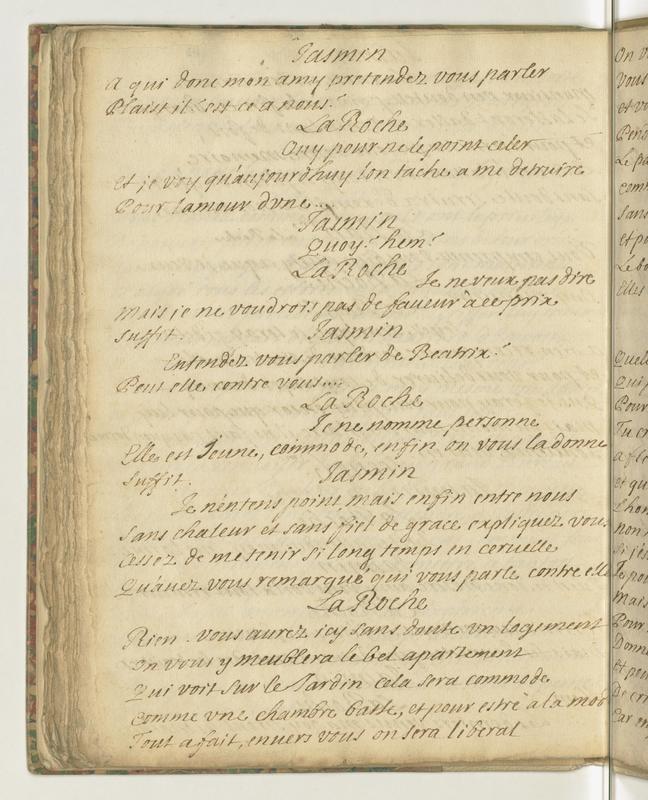 Jasmin
A qui donc mon amy pretendez vous parler
Plaist il? est ce a nous?
La Roche
Ouy pour ne le point celer
Et je voy qu'aujourdhuy l'on tache a me detruire
Pour l'amour dvne...
Jasmin
Quoy? hem?
La Roche
Je ne veux pas dire
Mais je ne voudrois pas de faueur a ce prix
Suffit.
Jasmin
Entendez vous parler de Beatrix?
Peut elle contre vous....
La Roche
Je ne nomme personne
Elle est Jeune, commode, enfin on vous la donne
Suffit.
Jasmin
Je n'entens point, mais enfin entre nous
Sans chaleur et sans fiel de grace expliquez vous
Cessez de me tenir si long temps en ceruelle
Qu'auez vous remarqué qui vous parle contre elle
La Roche
Rien. vous aurez icy sans doute vn logement
On vous y meublera le bel apartement
Qui voit sur le Jardin cela sera commode
Comme vne chambre basse, et pour estre a la mode
Tout a fait, enuers vous on sera liberal
On v
Vous
et vo
Le pa
comm
Sans
et po
Le bo
Elles
Quel
Qui
Pour
Tu cr
et qu
L'hon
non
Je pou
Mais
Pour
Donne
et pou
De cri
Car en